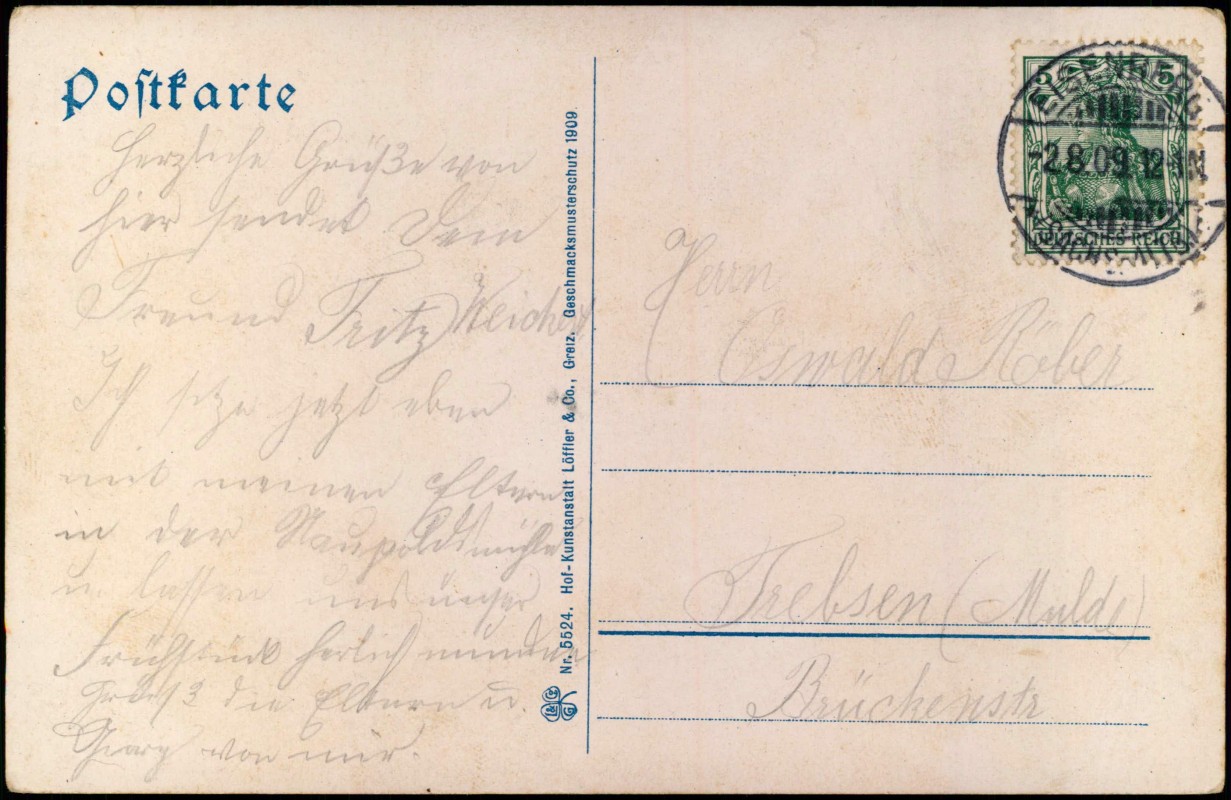 Postkarte
Herzliche Grüße von
hier sendet Dein
Freund Fritz Weichert
Ich sitze jetzt eben
mit meinen Eltern
in der Naupoldsmühle
u. lassen uns unser
Frühstück herlich munden
Grüß die Eltern u.
Georg von mir.
Nr. 5524. Hof-Kunstanstalt Löffler & Co., Greiz. Geschmacksmusterschutz 1909
5 5
DEUTSCHES REICH
EISENBERG
-2.8.09. 12-1N
Herrn
Oswald Röber
Trebsen (Mulde)
Brückenstr